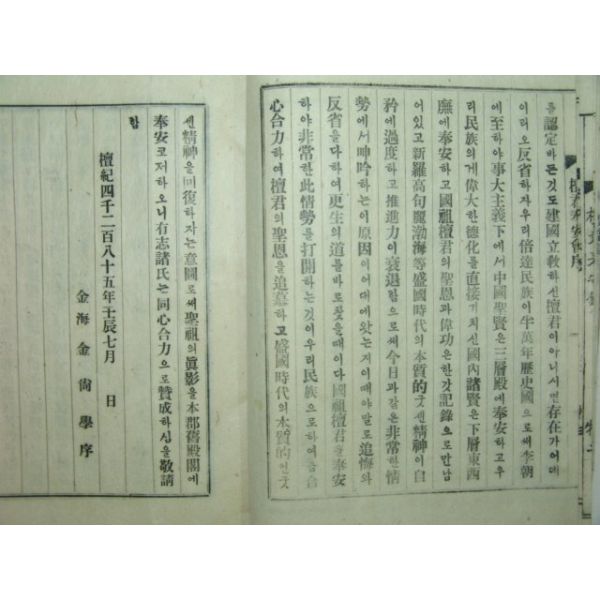 를 認定바든것도 建國立敎하신 檀君이 아니서면 存在가 어데
이러오 反省하자 우리 倍達民族이 半萬年歷史國으로써 李朝
에 至하야 事大主義下에서 中國聖賢은 三層殿에 奉安하고 우
리 民族의게 偉大한 德化를 直接기치신 國內諸賢은 下層東西
廡에 奉安하고 國祖檀君의 聖恩과 偉功은 한갓 記錄으로만 남
어있고 新羅高句麗渤海等盛國時代의 本質的 굿센 精神이 自
矜에 過度하고 推進力이 衰退함으로써 今日과 갈은 非常한 情
勢에서 呻吟하는 이 原因이 어대에 앗는지 이때야말로 追悔와
反省을 다하여 更生의 道를 바로찾을때이다 國祖檀君을 奉安
하야 非常한 此情勢를 打開하는것이 우리 民族으로 하여금 合
心合力하여 檀君의 聖恩을 追慕하고 盛國時代의 本質的인 굿
센 精神을 回復하자는 意圖로써 聖祖의 眞影을 本郡舊殿閣에
奉安코저하오니 有志諸氏는 同心合力으로 贊成하심을 敬請
함
檀紀四千二百八十五年壬辰七月 日
金海金尙學序